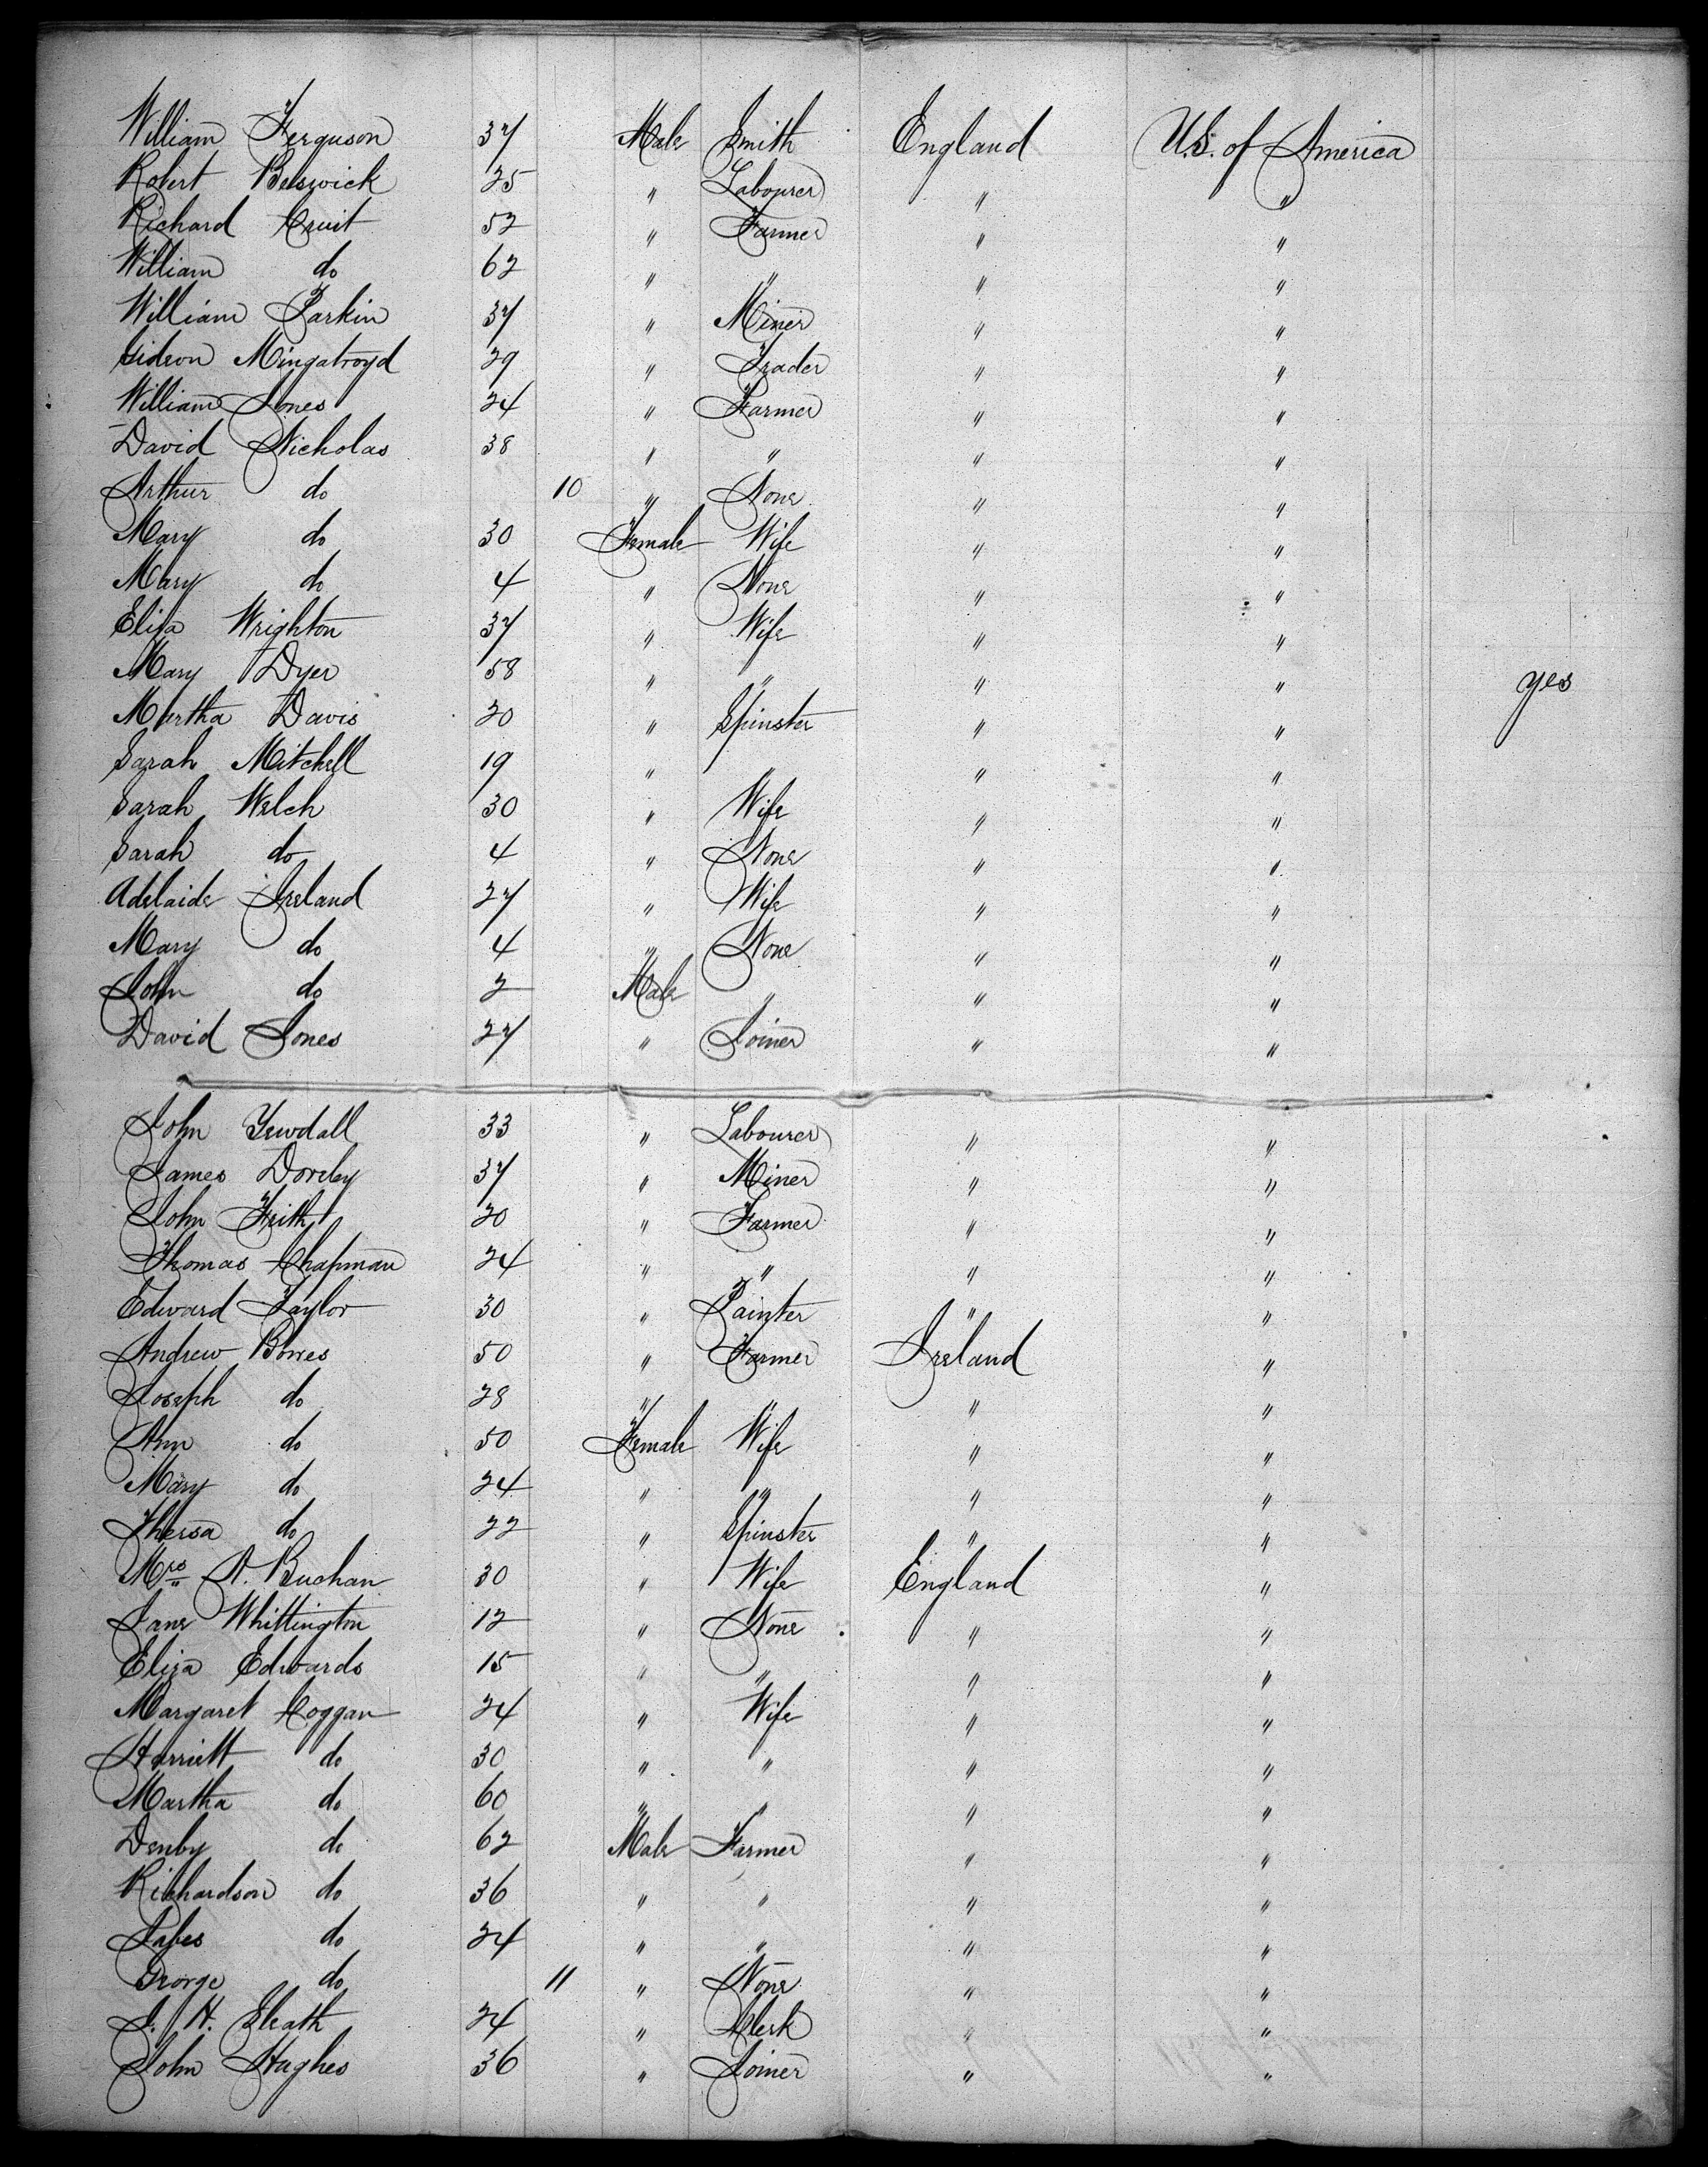 William Ferguson 37 Male Smith England U.S. of America
Robert Beswick 25 " Labourer " "
Richard Cruit 52 " Farmer " "
William do 62 " " " "
William Parkin 37 " Miner " "
Gideon Mingatroyd 29 " Trader " "
William Jones 24 " Farmer " "
David Nicholas 38 " " " "
Arthur do 10 " None " "
Mary do 30 Female Wife " "
Mary do 4 " None " "
Eliza Wrighton 37 " Wife " "
Mary Dyer 58 " " " " yes
Martha Davis 20 " Spinster " "
Sarah Mitchell 19 " " " "
Sarah Welch 30 " Wife " "
Sarah do 4 " None " "
Adelaide Ireland 27 " Wife " "
Mary do 4 " None " "
John do 2 Male " " "
David Jones 27 " Joiner " "
John Yewdall 33 " Labourer " "
James 37 " Miner " "
John Frith 20 " Farmer " "
Thomas Chapman 24 " " " "
Edward Taylor 30 " Painter " "
Andrew Bowes 50 " Farmer Ireland "
Joseph do 28 " " " "
Ann do 50 Female Wife " "
Mary do 24 " " " "
Thersa do 22 " Spinster " "
Mrs A. Buchan 30 " Wife England "
Jane Whittington 12 " None " "
Eliza Edwards 15 " " " "
Margaret Coggan 24 " Wife " "
Harriett do 30 " " " "
Martha do 60 " " " "
Denby do 62 Male Farmer " "
Richardson do 36 " " " "
Jabes do 24 " " " "
George do 11 " None " "
J. H. 24 " Clerk " "
John Hughes 36 " Joiner " "